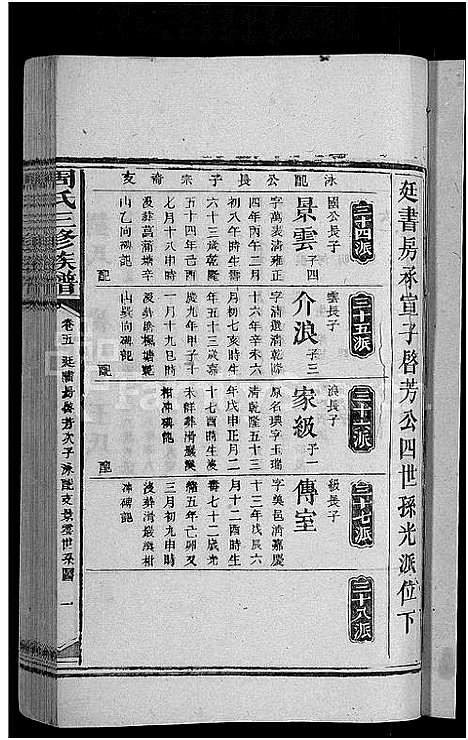 廷書房承宣子啓芳公四世孫光派位下
泳配公長子宗裔支
三十四派
國公長子
景雲 子四
字萬表清雍正
四年丙午二月
初八午時生壽
六十三歲乾隆
五十四年己酉
七月十八申時
沒葬葛蒲塘辛
山乙向碑記
配
三十五派
雲長子
介浪 子三
字清選清乾隆
十六年辛未六
月初七亥時生
壽五十三歲嘉
慶九年甲子十
一月十九巳時
山巽向碑記
配
三十六派
浪長子
家級 子一
原名璵字玉瑞
清乾隆五十三
年戊申正月二
十七酉時生沒
相冲碑記
配
三十七派
級長子
傳室
字美邑清嘉慶
十三年戊辰六
月十二酉時生
壽七十二歲光
緒五年己卯又
三月初九申時
冲碑記
三十八派
周氏三修族譜
卷五
廷書房啓芳次子泳配支景雲世系圖
一